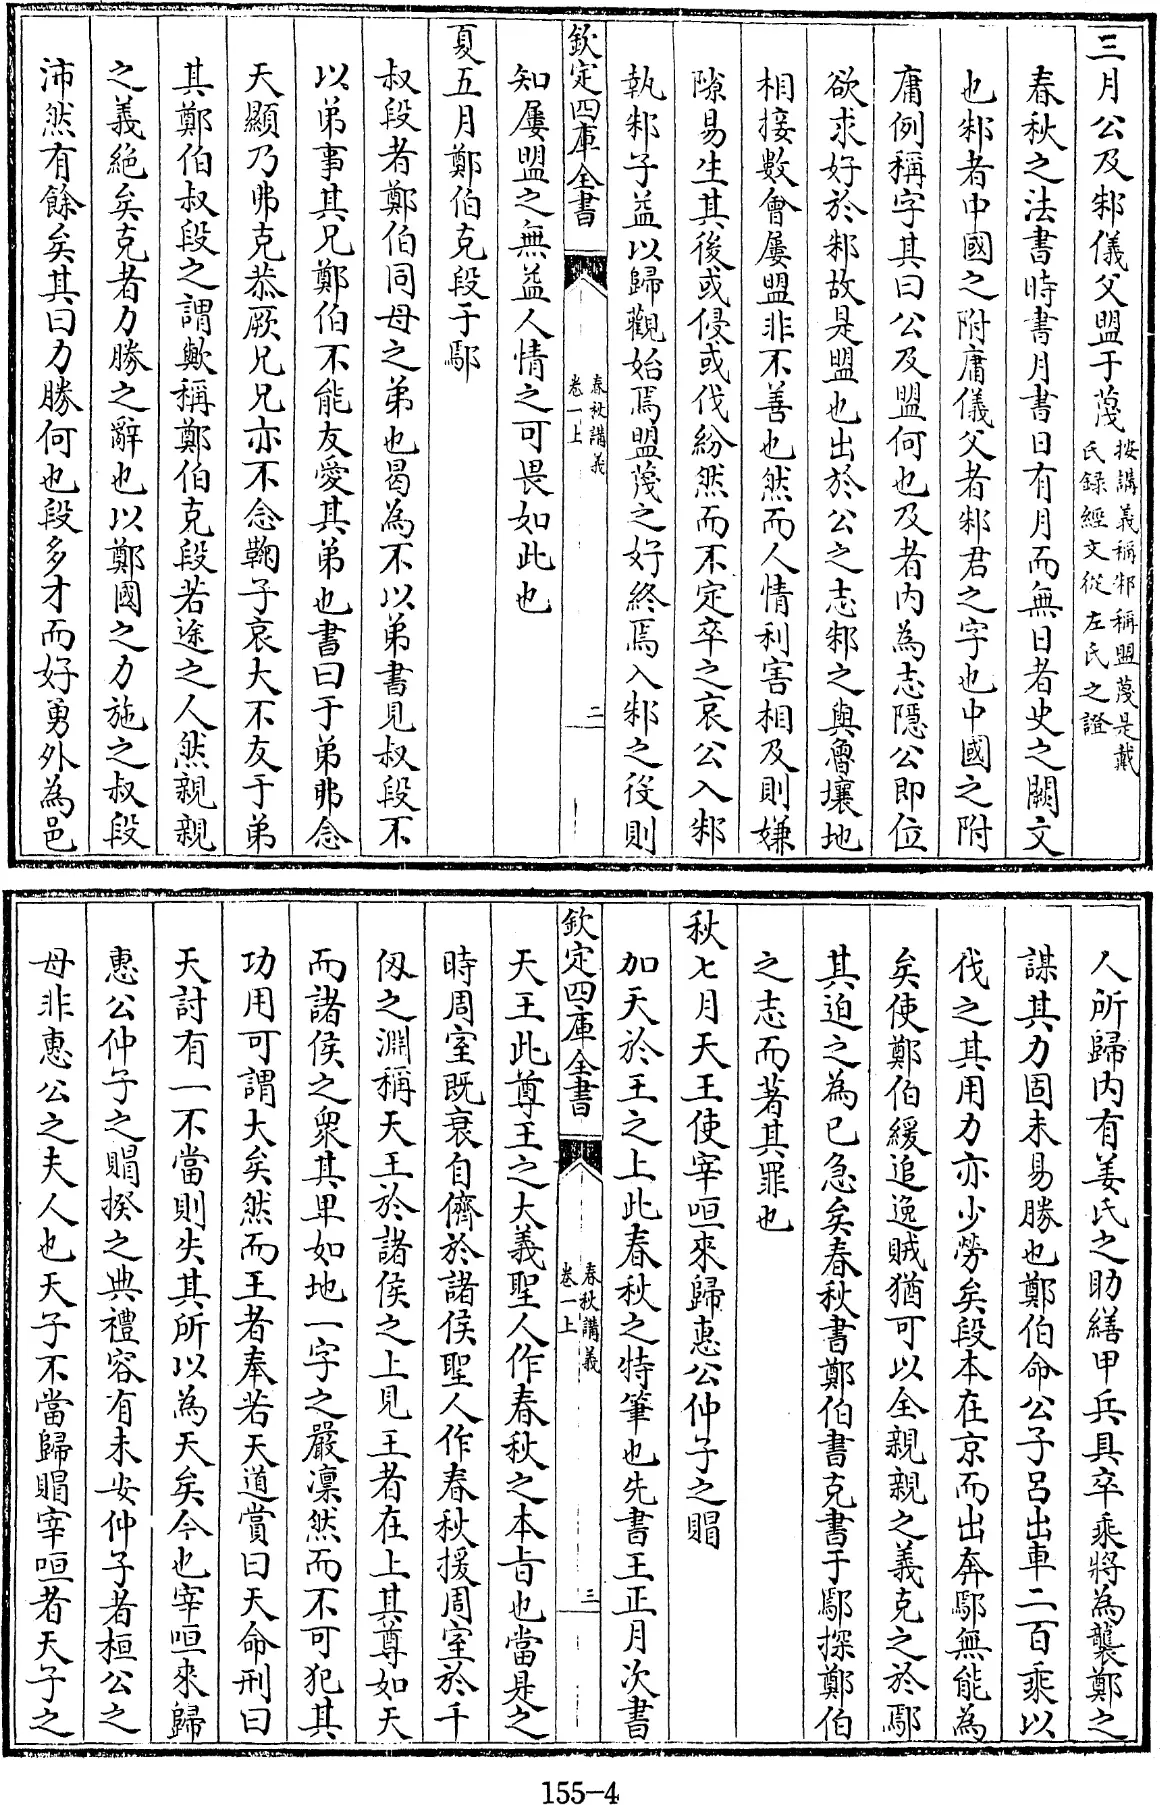 三月公及邾儀父盟于蔑按講義稱邾稱盟蔑是戴
氏錄經文從左氏之證
春秋之法書時書月書日有月而無日者史之闕文
也邾者中國之附庸儀父者邾君之字也中國之附
庸例稱字其曰公及盟何也及者內為志隱公即位
欲求好於邾故是盟也出於公之志邾之與魯壤地
相接數會屢盟非不善也然而人情利害相及則嫌
隙易生其後或侵或伐紛然而不定卒之哀公入邾
執邾子益以歸觀始焉盟蔑之好終焉入邾之役則
欽定四庫全書
春秋講義
卷一上
二
知屢盟之無益人情之可畏如此也
夏五月鄭伯克段于鄢
叔段者鄭伯同母之弟也曷為不以弟書見叔段不
以弟事其兄鄭伯不能友愛其弟也書曰于弟弗念
天顯乃弗克恭厥兄兄亦不念鞠子哀大不友于弟
其鄭伯叔段之謂歟稱鄭伯克段若途之人然親親
之義絕矣克者力勝之辭也以鄭國之力施之叔段
沛然有餘矣其曰力勝何也段多才而好勇外為邑
人所歸內有姜氏之助繕甲兵具卒乘將為襲鄭之
謀其力固未易勝也鄭伯命公子呂出車二百乘以
伐之其用力亦少勞矣段本在京而出奔鄢無能為
矣使鄭伯緩追逸賊猶可以全親親之義克之於鄢
其迫之為已急矣春秋書鄭伯書克書于鄢探鄭伯
之志而著其罪也
秋七月天王使宰咺來歸惠公仲子之賵
加天於王之上此春秋之特筆也先書王正月次書
欽定四庫全書
春秋講義
卷一上
三
天王此尊王之大義聖人作春秋之本旨也當是之
時周室既衰自儕於諸侯聖人作春秋援周室於千
仭之淵稱天王於諸侯之上見王者在上其尊如天
而諸侯之衆其卑如地一字之嚴凜然而不可犯其
功用可謂大矣然而王者奉若天道賞曰天命刑曰
天討有一不當則失其所以為天矣今也宰咺來歸
惠公仲子之賵揆之典禮容有未安仲子者桓公之
母非惠公之夫人也天子不當歸賵宰咺者天子之
155-4